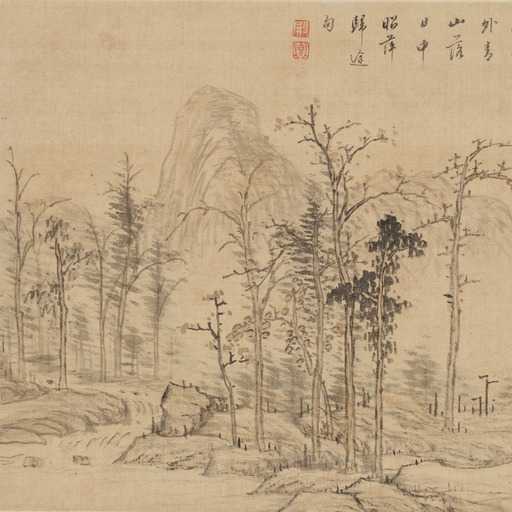 外青
山落
日中
昭萍
歸途
句